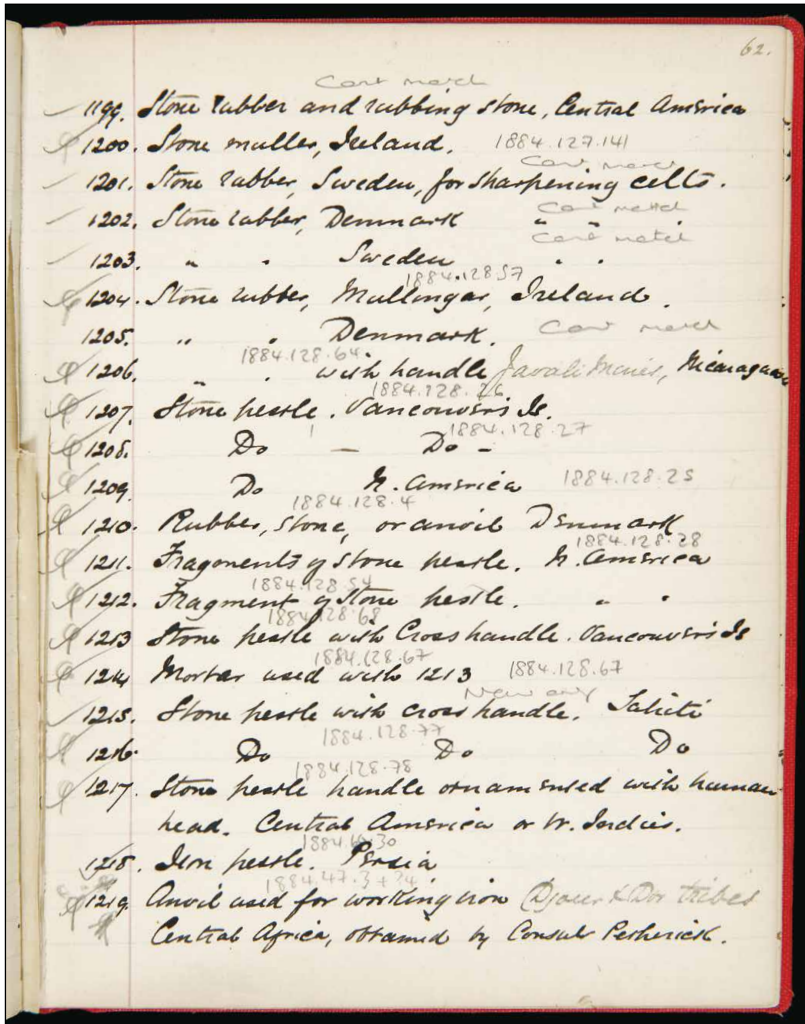 62.
Cant match
1199. Stone rubber and rubbing stone, Central America
1200. Stone muller, Ireland. 1884.127.141
Cant match
1201. Stone rubber, Sweden, for sharpening celts.
Cant match
1202. Stone rubber, Denmark " " .
Cant match
1203. " " Sweden " .
1884.128.57
1204. Stone rubber, Mullingar, Ireland.
1205. " " Denmark. Cant match
1884.128.64
1206. " . with handle Javali Mines, Nicaragua
1884.128.26
1207. Stone pestle. Vancouver's Is.
1884.128.27
1208. Do — Do -
1209. Do N. America 1884.128.25
1884.128.4
1210. Rubber, stone, or anvil Denmark
1884.128.28
1211. Fragments of Stone pestle. N. America
1884.128.54
1212. Fragment of Stone pestle. " "
1884.128.68
1213 Stone pestle with Cross handle. Vancouver's Is
1884.128.67
1214 Mortar used with 1213 1884.128.67
1215. Stone pestle with cross handle. Tahiti
1884.128.77
1216. Do Do Do
1884.128.78
1217. Stone pestle handle ornamented with human
head. Central America or W. Indies.
1218. Iron pestle. Persia
1219. Anvil used for working iron (Djour & Dor tribes
Central Africa, obtained by Consul Petherick.